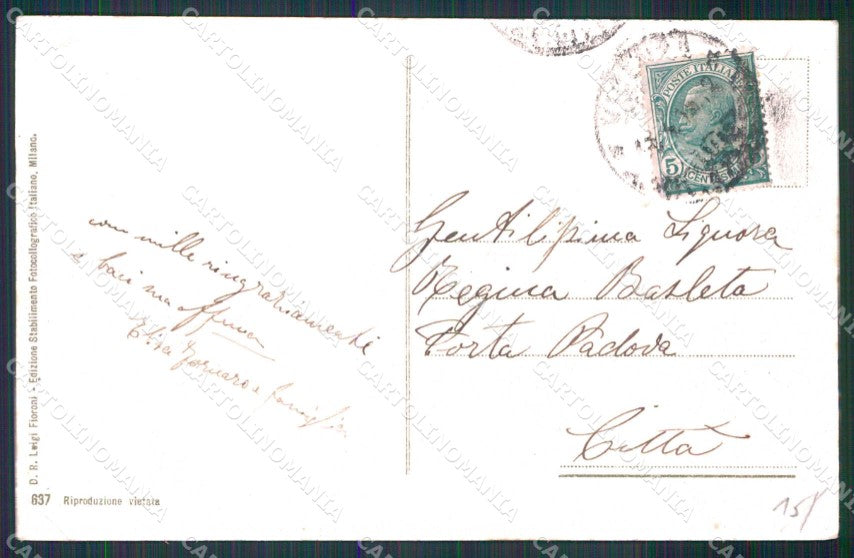 POSTE ITALIANE
5
CENTESIMI
Gentilissima Signora
Regina Basleta
Porta Padova
Città
con mille ringraziamenti
e baci
Elisa Fornaro e famiglia
D. R. Luigi Fioroni - Edizione Stabilimento Fotocollografico Italiano, Milano.
637 Riproduzione vietata
15/
CARTOLINOMANIA